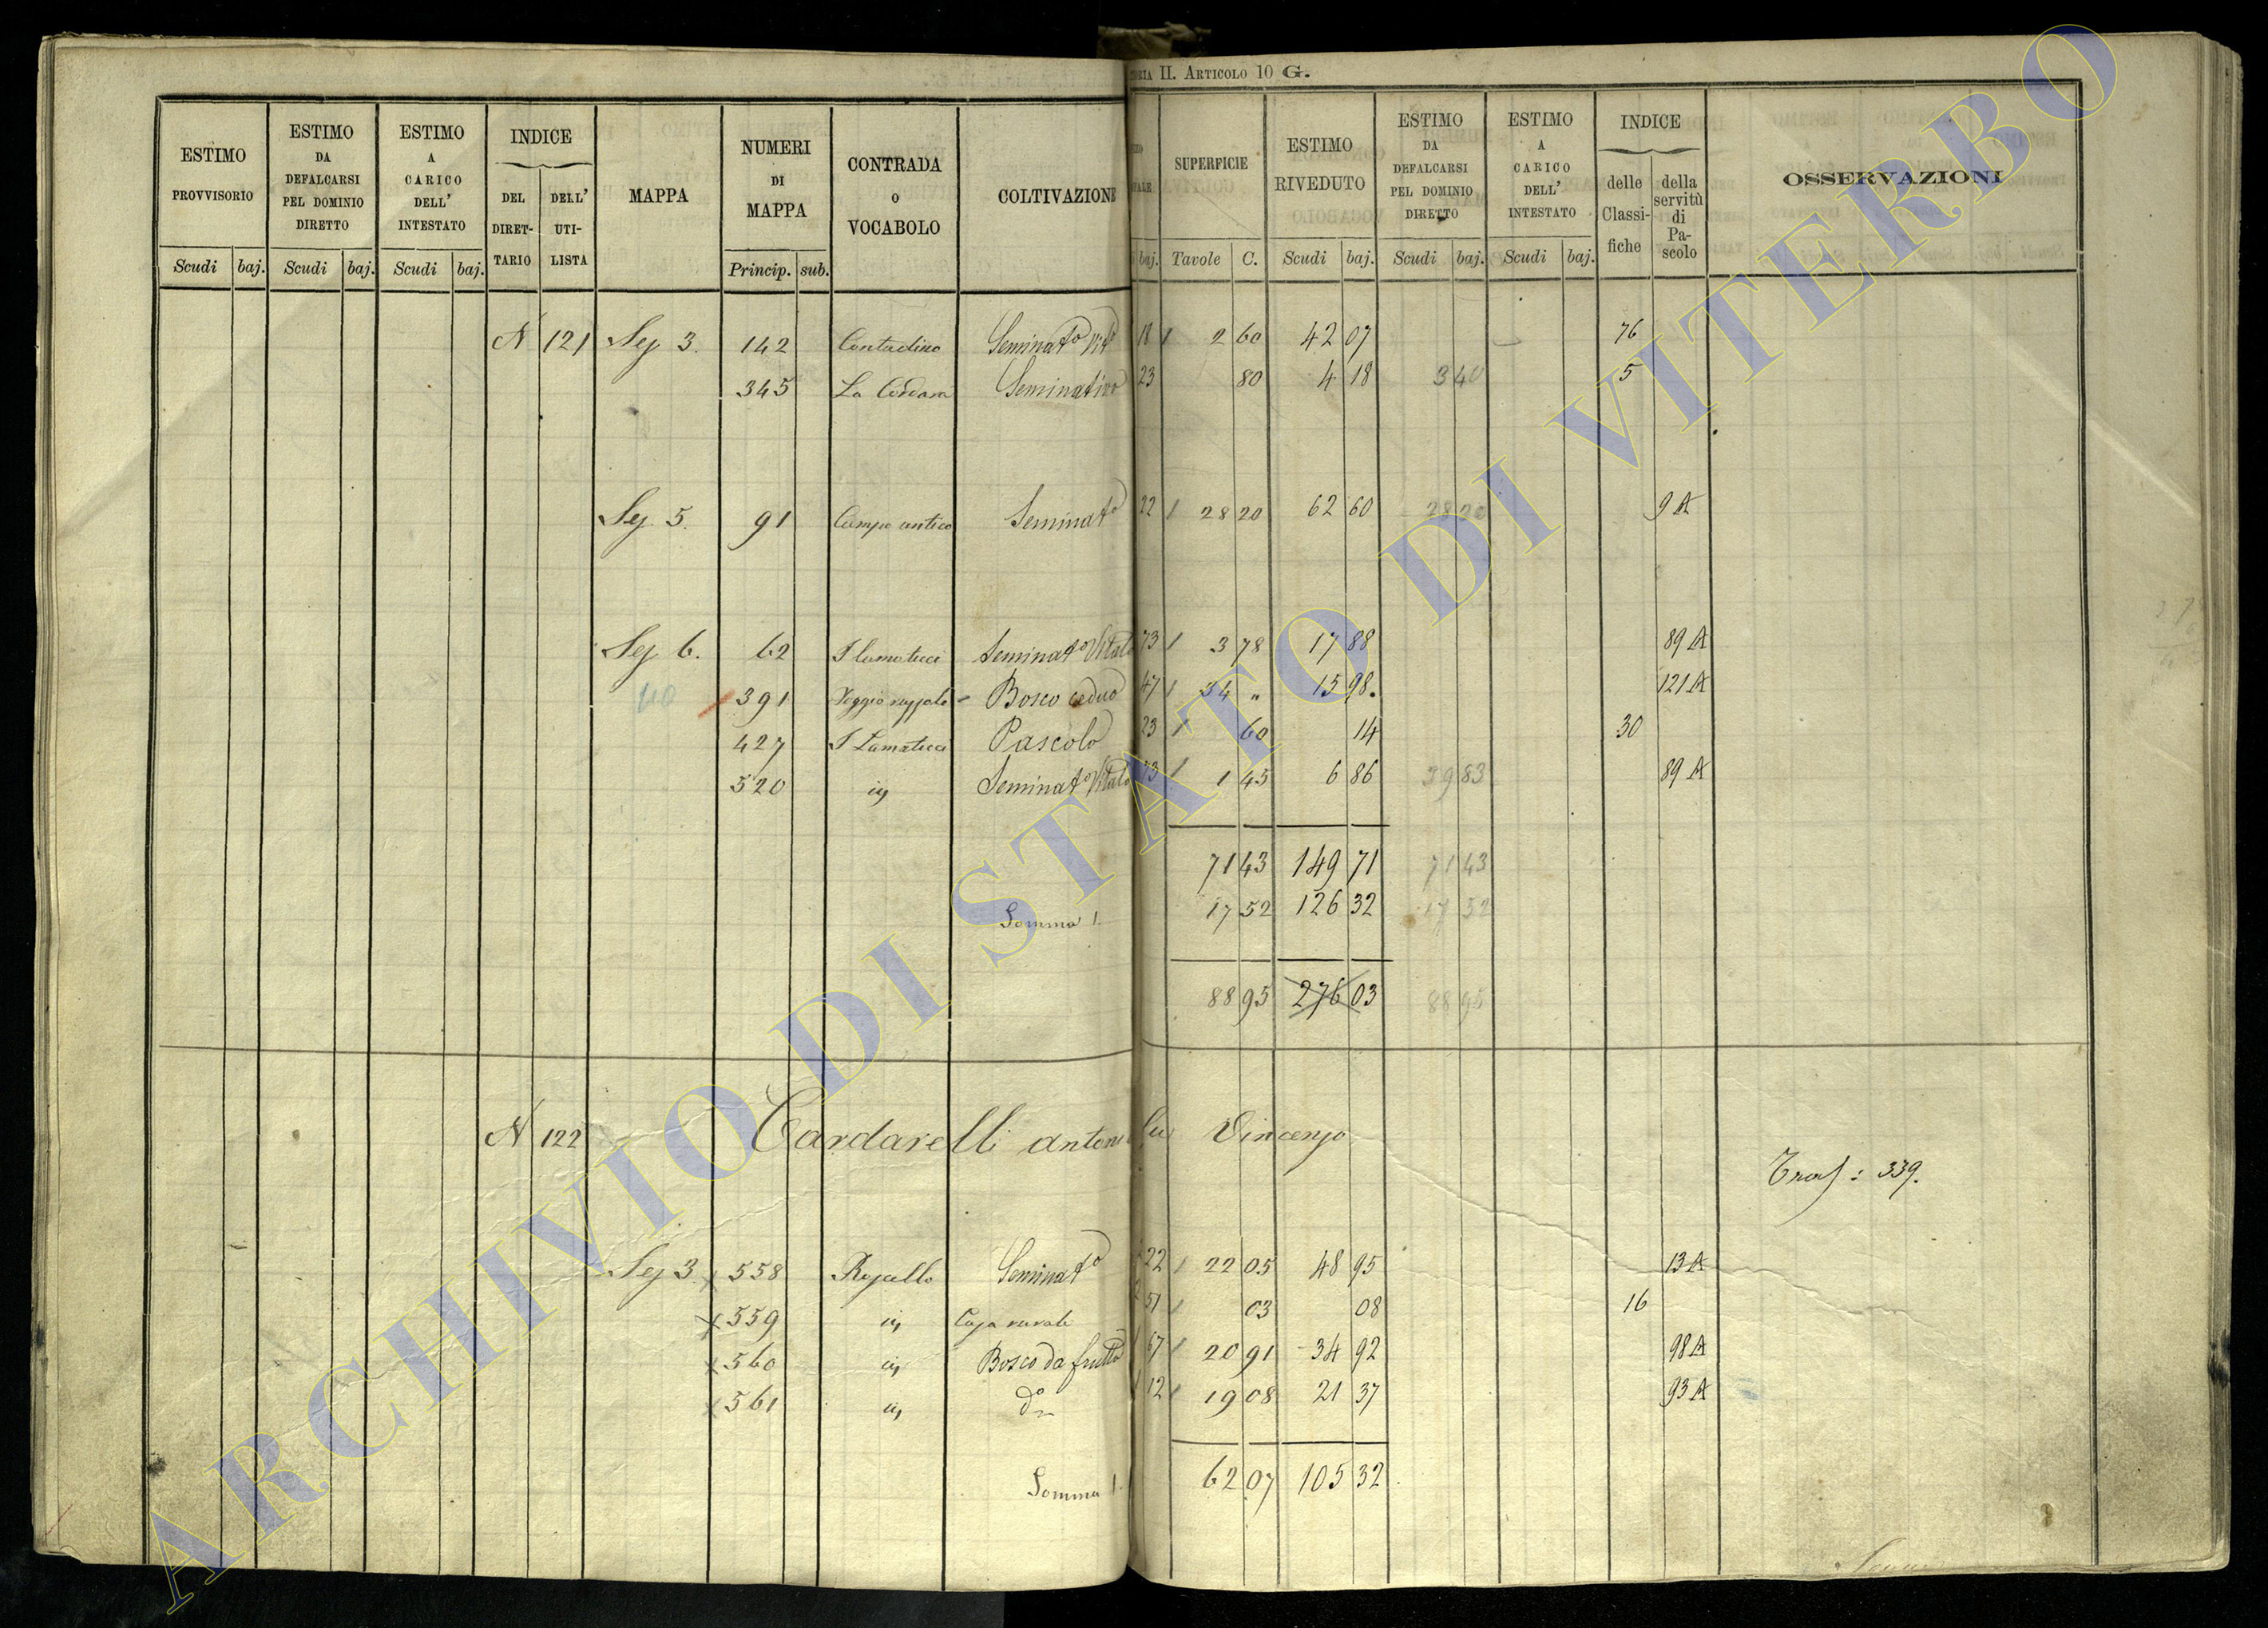 ORIA II. ARTICOLO 10 G.
ESTIMO PROVVISORIO Scudi baj.
ESTIMO DA DEFALCARSI PEL DOMINIO DIRETTO Scudi baj.
ESTIMO A CARICO DELL' INTESTATO Scudi baj.
INDICE DEL DIRET-TARIO DELL' UTI-LISTA
MAPPA
NUMERI DI MAPPA Princip. sub.
CONTRADA o VOCABOLO
COLTIVAZIONE
baj.
SUPERFICIE Tavole C.
ESTIMO RIVEDUTO Scudi baj.
ESTIMO DA DEFALCARSI PEL DOMINIO DIRETTO Scudi baj.
ESTIMO A CARICO DELL' INTESTATO Scudi baj.
INDICE delle Classi-fiche della servitù di Pa-scolo
OSSERVAZIONI
N 121 Sez 3. 142 Contadino Seminato Vito 18 2 60 42 07 76
345 La Cordara Seminativo 23 80 4 18 3 40 5
Sez. 5. 91 Campo antico Seminato 22 28 20 62 60 28 20 9 A
Sez 6. 62 Seminato Vitato 73 3 78 17 88 89 A
391 Bosco ceduo 47 34 " 15 98. 121 A
427 Pascolo 23 60 14 30
520 id Seminato Vitato 73 1 45 6 86 39 83 89 A
71 43 149 71 71 43
Somma 1. 17 52 126 32 17 52
88 95 276 03 88 95
N 122 Cardarelli antonio fu Vincenzo
Trasf: 339.
Sez 3. 558 Seminato 22 22 05 48 95 13 A
559 id Casa rurale 51 03 08 16
560 id Bosco da frutto 67 20 91 34 92 98 A
561 id do 12 19 08 21 37 93 A
Somma 1. 62 07 105 32
ARCHIVIO DI STATO DI VITERBO